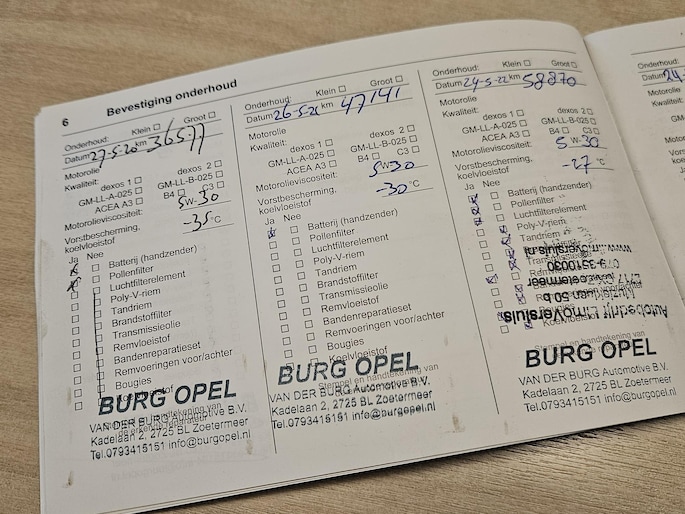 6 Bevestiging onderhoud
Onderhoud: Klein ☐ Groot ☐
Datum 27-5-20 km 36577
Motorolie
Kwaliteit: dexos 1 ☐ dexos 2 ☐
GM-LL-A-025 ☐ GM-LL-B-025 ☐
ACEA A3 ☐ B4 ☐ C3 ☐
Motorolieviscositeit: 5W-30
Vorstbescherming,
koelvloeistof -35 °C
Ja Nee
Batterij (handzender)
Pollenfilter
Luchtfilterelement
Poly-V-riem
Tandriem
Brandstoffilter
Transmissieolie
Remvloeistof
Bandenreparatieset
Remvoeringen voor/achter
Bougies
Koelvloeistof
BURG OPEL
VAN DER BURG Automotive B.V.
Kadelaan 2, 2725 BL Zoetermeer
Tel.0793415151 info@burgopel.nl
Onderhoud: Klein ☐ Groot ☐
Datum 26-5-21 km 47141
Motorolie
Kwaliteit: dexos 1 ☐ dexos 2 ☐
GM-LL-A-025 ☐ GM-LL-B-025 ☐
ACEA A3 ☐ B4 ☐ C3 ☐
Motorolieviscositeit: 5W-30
Vorstbescherming,
koelvloeistof -30 °C
Ja Nee
Batterij (handzender)
Pollenfilter
Luchtfilterelement
Poly-V-riem
Tandriem
Brandstoffilter
Transmissieolie
Remvloeistof
Bandenreparatieset
Remvoeringen voor/achter
Bougies
Koelvloeistof
Stempel en handtekening van
BURG OPEL
VAN DER BURG Automotive B.V.
Kadelaan 2, 2725 BL Zoetermeer
Tel.0793415151 info@burgopel.nl
Onderhoud: Klein ☐ Groot ☐
Datum 24-5-22 km 58870
Motorolie
Kwaliteit: dexos 1 ☐ dexos 2 ☐
GM-LL-A-025 ☐ GM-LL-B-025 ☐
ACEA A3 ☐ B4 ☐ C3 ☐
Motorolieviscositeit: 5W-30
Vorstbescherming,
koelvloeistof -27 °C
Ja Nee
Batterij (handzender)
Pollenfilter
Luchtfilterelement
Poly-V-riem
Tandriem
Autobedrijf LimoVersluis
079-3510030
www.limoversluis.nl
Stempel en handtekening van
BURG OPEL
VAN DER BURG Automotive B.V.
Kadelaan 2, 2725 BL Zoetermeer
Tel.0793415151 info@burgopel.nl
Onderhoud:
Datum 24-
Motorolie
Kwaliteit: